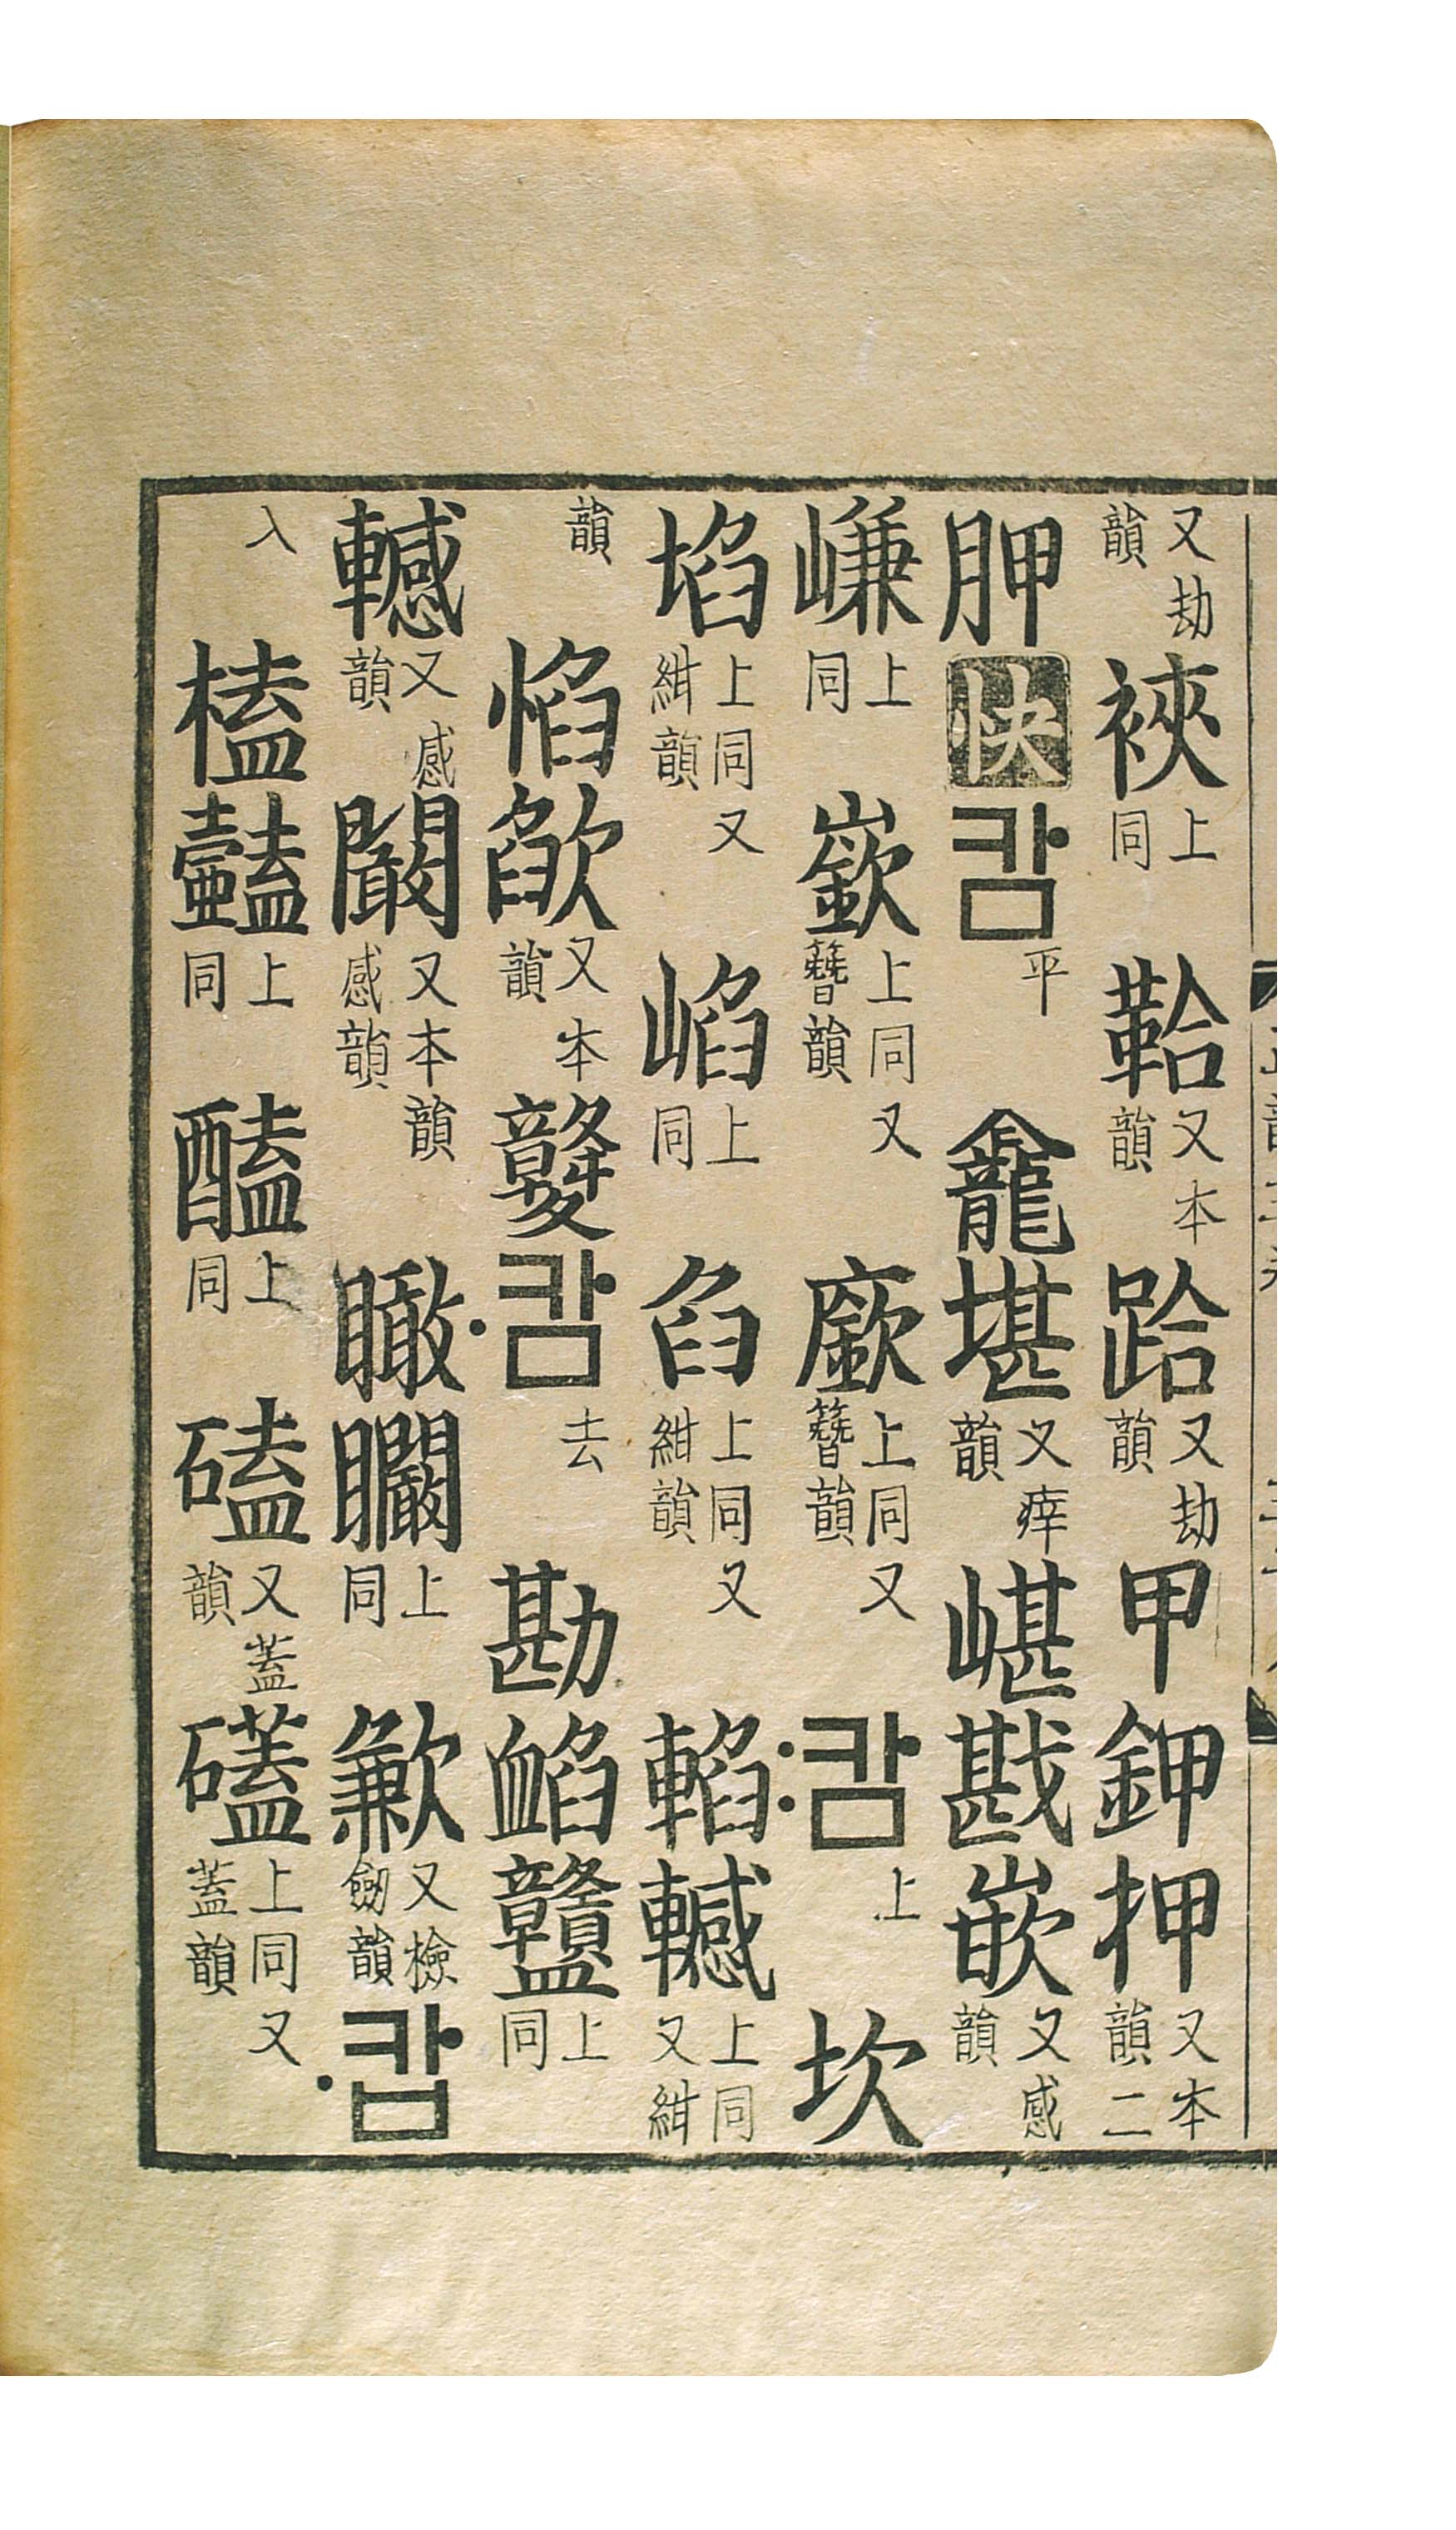 又劫韻裌上同鞈又本韻跲又劫韻甲鉀押又本韻二
胛快캄平龕堪又瘁韻嵁戡嵌又感韻
嵰上同嶔上同又簪韻廞上同又簪韻캄〯上坎
埳上同又紺韻㟏上同臽上同又紺韻輡轗上同又紺
韻惂欿又本韻竷캄〮去勘䘓上同
轗又感韻闞又本韻感韻瞰矙上同歉又檢劒韻캅〮
入榼上同醘上同磕又蓋韻礚上同又蓋韻